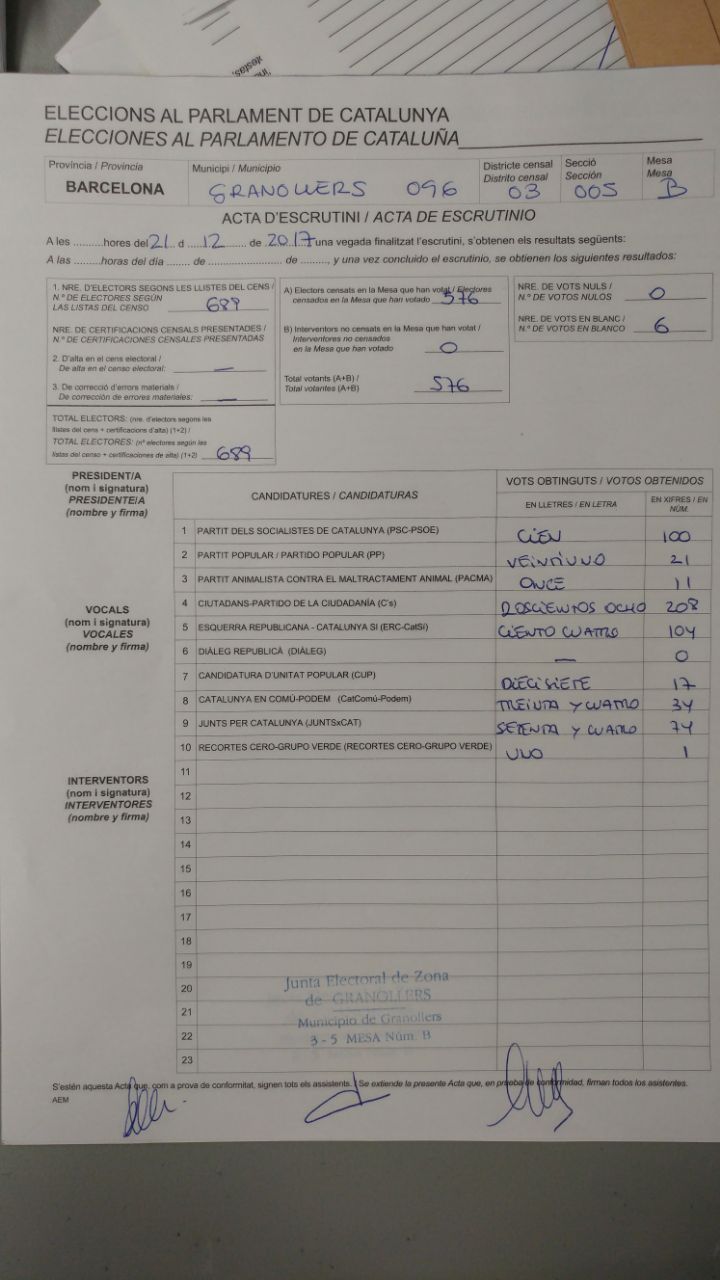 ELECCIONS AL PARLAMENT DE CATALUNYA
ELECCIONES AL PARLAMENTO DE CATALUÑA
Província / Provincia
BARCELONA
Municipi / Municipio
GRANOLLERS 096
Districte censal
Distrito censal
03
Secció
Sección
005
Mesa
Mesa
B
ACTA D'ESCRUTINI / ACTA DE ESCRUTINIO
A les ..........hores del 21 d ..... 12 ....... de .2017 una vegada finalitzat l'escrutini, s'obtenen els resultats següents:
A las ..........horas del día ........ de .................... de ........., y una vez concluido el escrutinio, se obtienen los siguientes resultados:
1. NRE. D'ELECTORS SEGONS LES LLISTES DEL CENS /
N.º DE ELECTORES SEGÚN
LAS LISTAS DEL CENSO 689
NRE. DE CERTIFICACIONS CENSALS PRESENTADES /
N.º DE CERTIFICACIONES CENSALES PRESENTADAS
2. D'alta en el cens electoral /
De alta en el censo electoral: —
3. De correcció d'errors materials /
De corrección de errores materiales: —
TOTAL ELECTORS: (nre. d'electors segons les
llistes del cens + certificacions d'alta) (1+2) /
TOTAL ELECTORES: (nº electores según las
listas del censo + certificaciones de alta) (1+2) 689
A) Electors censats en la Mesa que han votat / Electores
censados en la Mesa que han votado 576
B) Interventors no censats en la Mesa que han votat /
Interventores no censados
en la Mesa que han votado 0
Total votants (A+B) /
Total votantes (A+B) 576
NRE. DE VOTS NULS /
N.º DE VOTOS NULOS 0
NRE. DE VOTS EN BLANC /
N.º DE VOTOS EN BLANCO 6
PRESIDENT/A
(nom i signatura)
PRESIDENTE/A
(nombre y firma)
VOCALS
(nom i signatura)
VOCALES
(nombre y firma)
INTERVENTORS
(nom i signatura)
INTERVENTORES
(nombre y firma)
CANDIDATURES / CANDIDATURAS
VOTS OBTINGUTS / VOTOS OBTENIDOS
EN LLETRES / EN LETRA
EN XIFRES / EN
NÚM.
1 PARTIT DELS SOCIALISTES DE CATALUNYA (PSC-PSOE) CIEN 100
2 PARTIT POPULAR / PARTIDO POPULAR (PP) VEINTIUNO 21
3 PARTIT ANIMALISTA CONTRA EL MALTRACTAMENT ANIMAL (PACMA) ONCE 11
4 CIUTADANS-PARTIDO DE LA CIUDADANÍA (C's) DOSCIENTOS OCHO 208
5 ESQUERRA REPUBLICANA - CATALUNYA SÍ (ERC-CatSí) CIENTO CUATRO 104
6 DIÀLEG REPUBLICÀ (DIÀLEG) — 0
7 CANDIDATURA D'UNITAT POPULAR (CUP) DIECISIETE 17
8 CATALUNYA EN COMÚ-PODEM (CatComú-Podem) TREINTA Y CUATRO 34
9 JUNTS PER CATALUNYA (JUNTSxCAT) SETENTA Y CUATRO 74
10 RECORTES CERO-GRUPO VERDE (RECORTES CERO-GRUPO VERDE) UNO 1
11
12
13
14
15
16
17
18
19
20
21
22
23
Junta Electoral de Zona
de GRANOLLERS
Municipio de Granollers
3 - 5 MESA Núm. B
S'estén aquesta Acta que, com a prova de conformitat, signen tots els assistents. / Se extiende la presente Acta que, en prueba de conformidad, firman todos los asistentes.
AEM